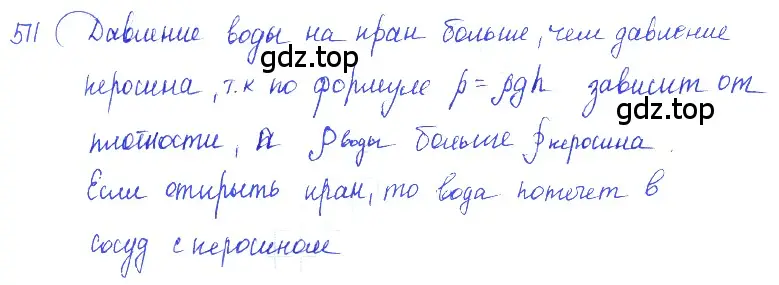 511 Давление воды на кран больше, чем давление
gdz.top
керосина, т.к по формуле p = ρgh зависит от
gdz.top
плотности, а ρ воды больше ρ керосина.
Если открыть кран, то вода потечет в
сосуд с керосином